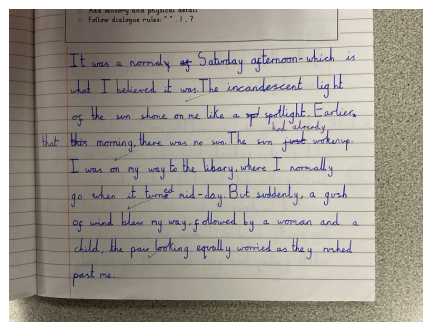 Add sensory and physical detail
Follow dialogue rules: " " . ! , ?
It was a normaly of Saturday afternoon - which is
what I believed it was. The incandescent light
of the sun shone on me like a spt spotlight. Earlier,
had already
that this morning, there was no sun. The sun just wokenup.
I was on my way to the libary, where I normally
go when it turned mid-day. But suddenly, a gush
of wind blew my way, followed by a woman and a
child, the pair looking equally worried as they rushed
past me.